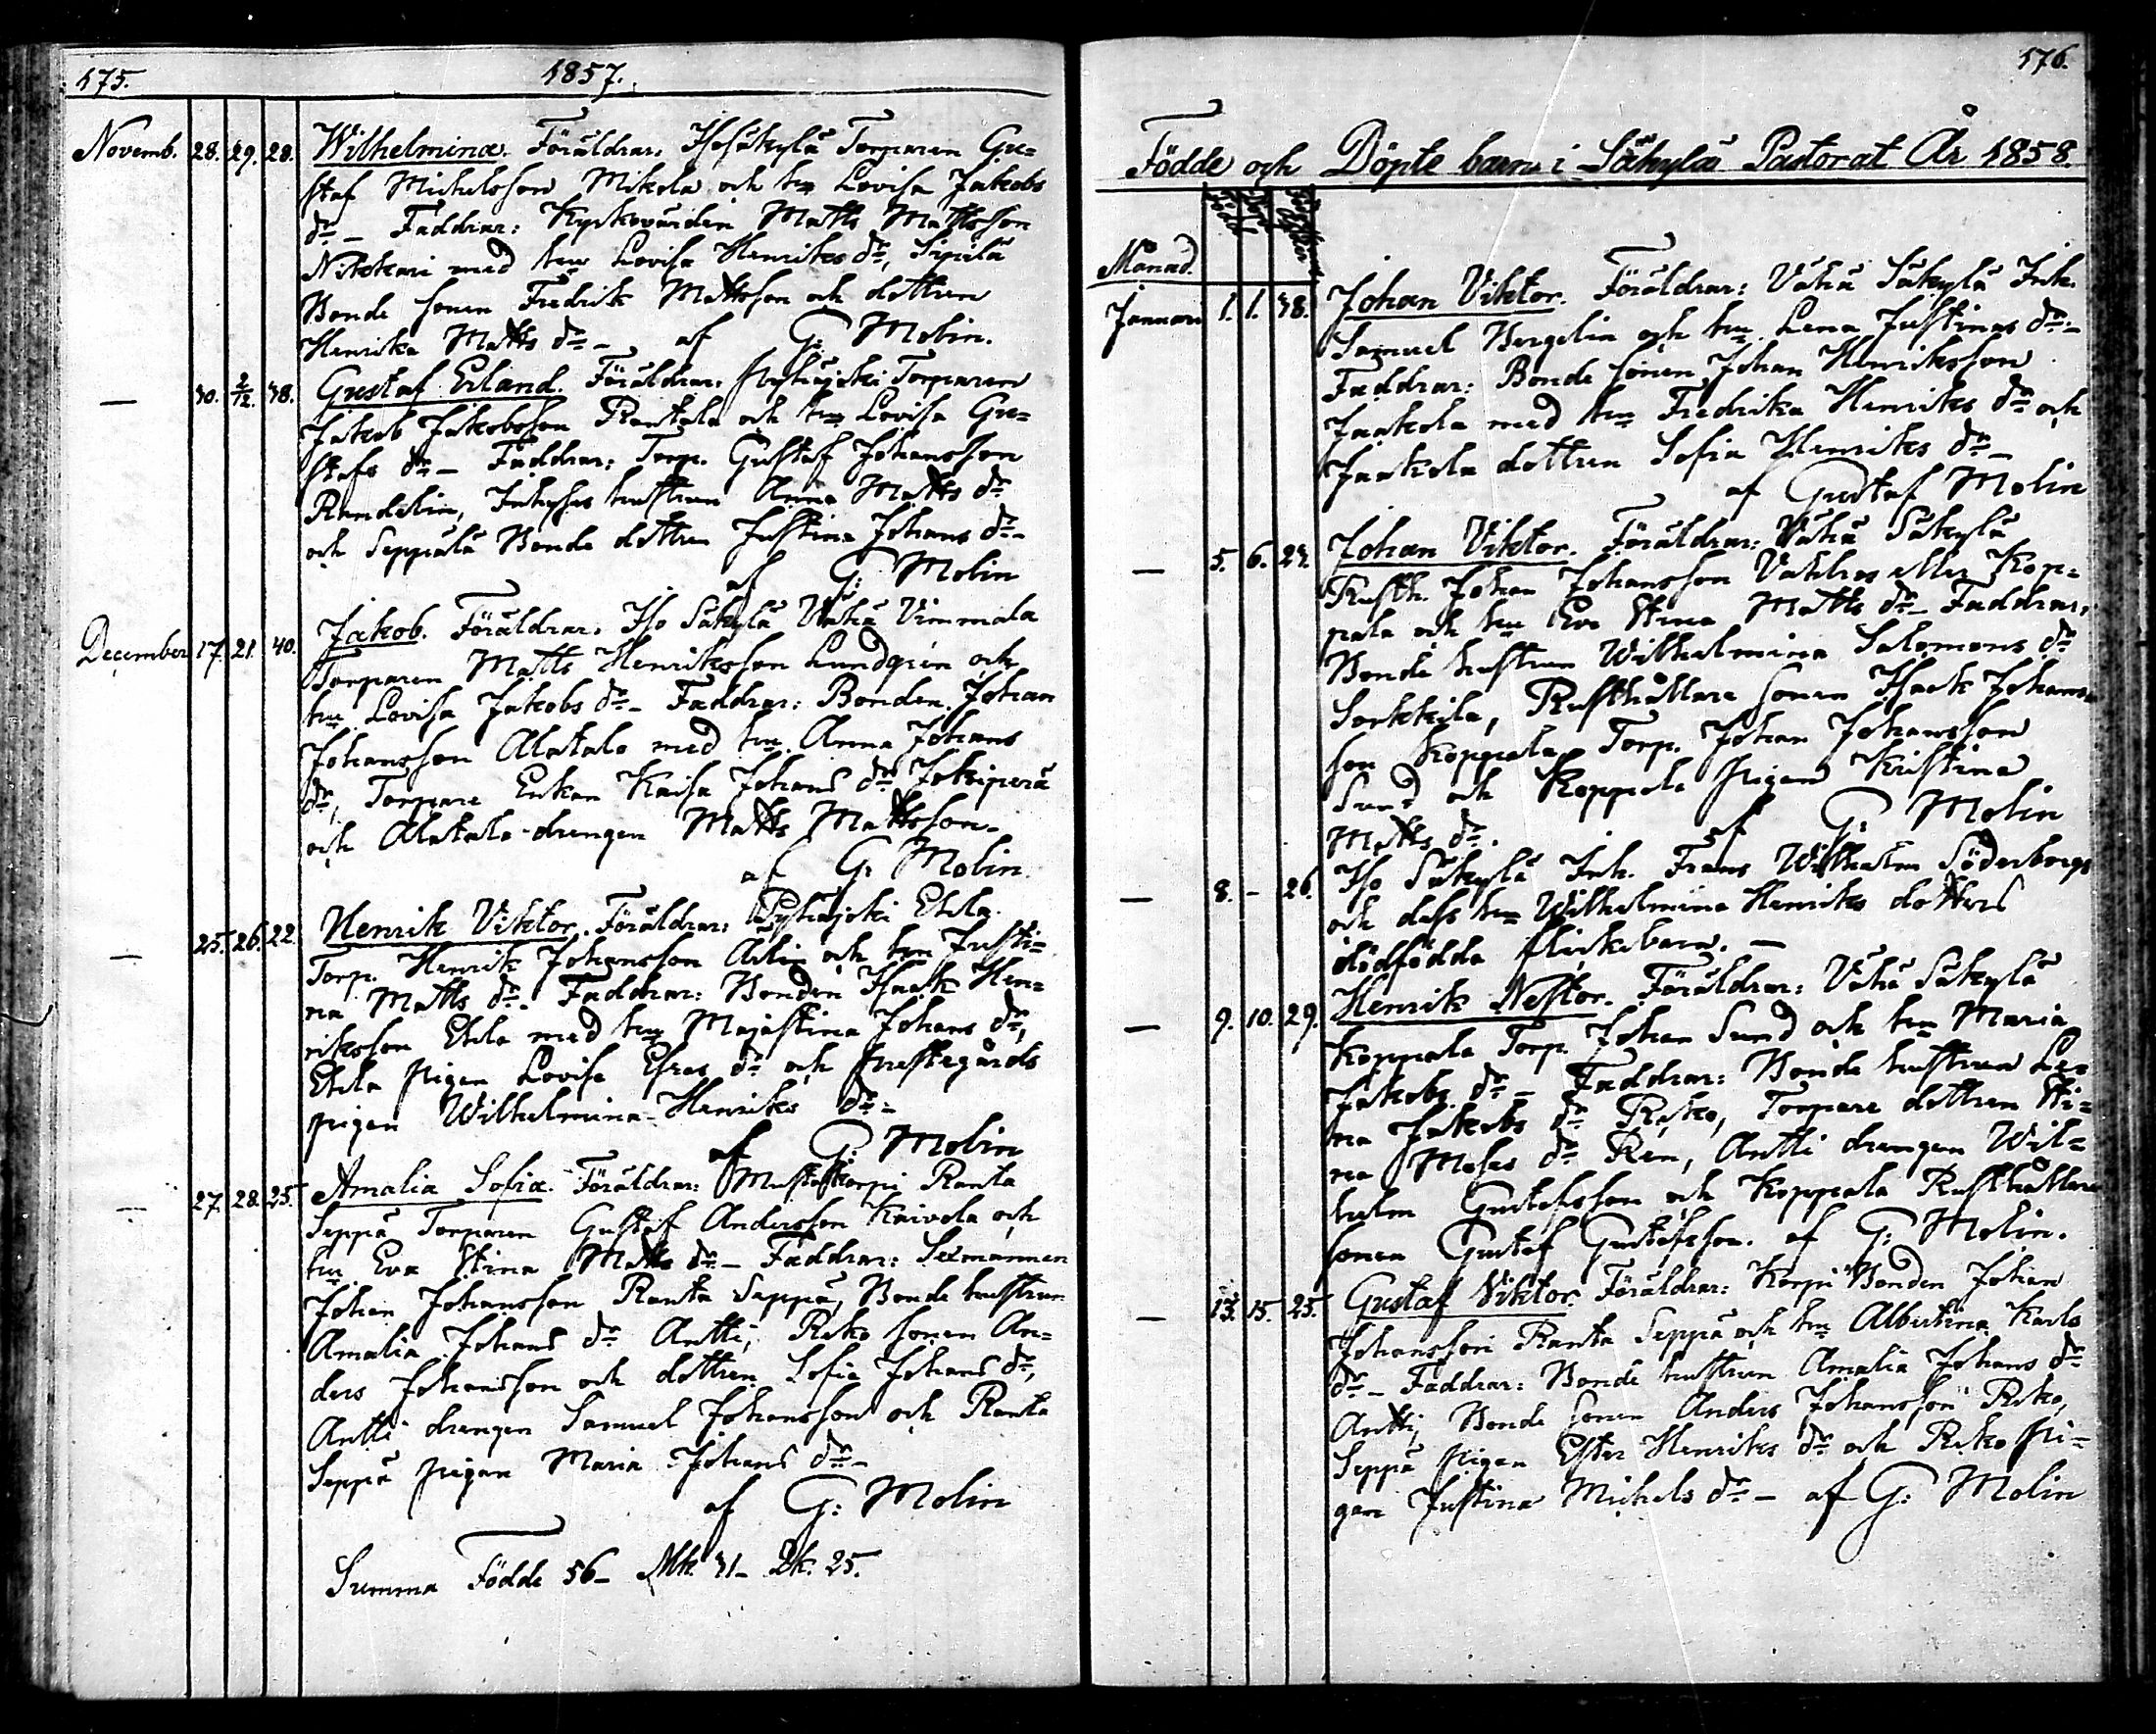 175.
1857.
Novemb. 28. 29. 28. Wilhelmina. Föräldrar: Iso Säkylä Torparen Gu=
staf Michelsson Mikola och hu Lovisa Jakobs
dr – Faddrar: Kyrkovärden Matts Mattsson
Nikkari med hu Lovisa Henriks dr, Sipilä
Bonde sonen Fredrik Mattsson och dottren
Henrika Matts dr – af G: Molin.
— 30. 2/12. 38. Gustaf Erland. Föräldrar: Pyhäjoki Torparen
Jakob Jakobsson Rantala och hu Lovisa Gu=
stafs dr – Faddrar: Torp. Gustaf Johansson
Randelin, Inhyses hustrun Anna Matts dr
och Seppälä Bonde dottren Justina Johans dr –
af G: Molin
December 17. 21. 40. Jakob. Föräldrar: Iso Säkylä Vähä Vimmala
Torparen Matts Henriksson Lundgren och
hu Lovisa Jakobs dr – Faddrar: Bonden Johan
Johansson Alatalo med hu Anna Johans
dr, Torpare Enkan Kaisa Johans dr Jokiperä
och Alatalo-drengen Matts Mattsson –
af G: Molin.
— 25. 26. 22. Henrik Viktor. Föräldrar: Pyhäjoki Ehla
Torp. Henrik Johansson Alin och hu Justi=
na Matts dr. Faddrar: Bonden Isaak Hen=
riksson Ehla med hu Majastina Johans dr,
Ehla pigan Lovisa Esras dr och Prestegårds
pigan Wilhelmina Henriks dr –
af G: Molin
— 27. 28. 25. Amalia Sofia. Föräldrar: Ranta
Seppä Torparen Gustaf Andersson Kaivola och
hu Eva Stina Matts dr – Faddrar: Sexmannen
Johan Johansson Ranta Seppä, Bonde hustrun
Amalia Johans dr Antti, Reko sonen An=
ders Johansson och dottren Sofia Johans dr,
Antti drengen Samuel Johansson och Ranta
Seppä pigan Maria Johans dr –
af G: Molin
Summa Födde 56 – Mk. 31 – Qk. 25.
176.
Födde och Döpte barn i Säkylä Pastorat År 1858.
Månad.
Januari 1. 1. 38. Johan Viktor. Föräldrar: Vähä Säkylä Inh.
Samuel Bergelin och hu Lena Justinas dr –
Faddrar: Bonde sonen Johan Henriksson
Jaakola med hu Fredrika Henriks dr och
Jaakola dottren Sofia Henriks dr –
af Gustaf Molin
— 5. 6. 27. Johan Viktor. Föräldrar: Vähä Säkylä
Rusth. Johan Johansson eller Kop=
pala och hu Eva Stina Matts dr – Faddrar:
Bonde hustrun Wilhelmina Salomons dr
Sorkkila, Rusthållare sonen Isaak Johans=
son Koppala Torp. Johan Johansson
Sund och Koppala pigan Kristina
Matts dr. af G: Molin
— 8. – 26. Iso Säkylä Inh. Frans Wilhelm Söderbergs
och dess hu Wilhelmina Henriks dotters
dödfödda flickebarn. –
— 9. 10. 29. Henrik Nestor. Föräldrar: Vähä Säkylä
Koppala Torp. Johan Sund och hu Maria
Jakobs dr – Faddrar: Bonde hustrun Le=
na Jakobs dr Reko, Torpare dottren Sti=
na Moses dr Ren, Antti drengen Wil=
helm Gustafsson och Koppala Rusthållare
sonen Gustaf Gustafsson. af G: Molin.
— 13. 15. 25. Gustaf Viktor. Föräldrar: Korpi Bonden Johan
Johansson Ranta Seppä och hu Albertina Karls
dr – Faddrar: Bonde hustrun Amalia Johans dr
Antti, Bonde sonen Anders Johansson Reko,
Seppä pigan Ester Henriks dr och Reko pi=
gan Justina Michels dr – af G: Molin